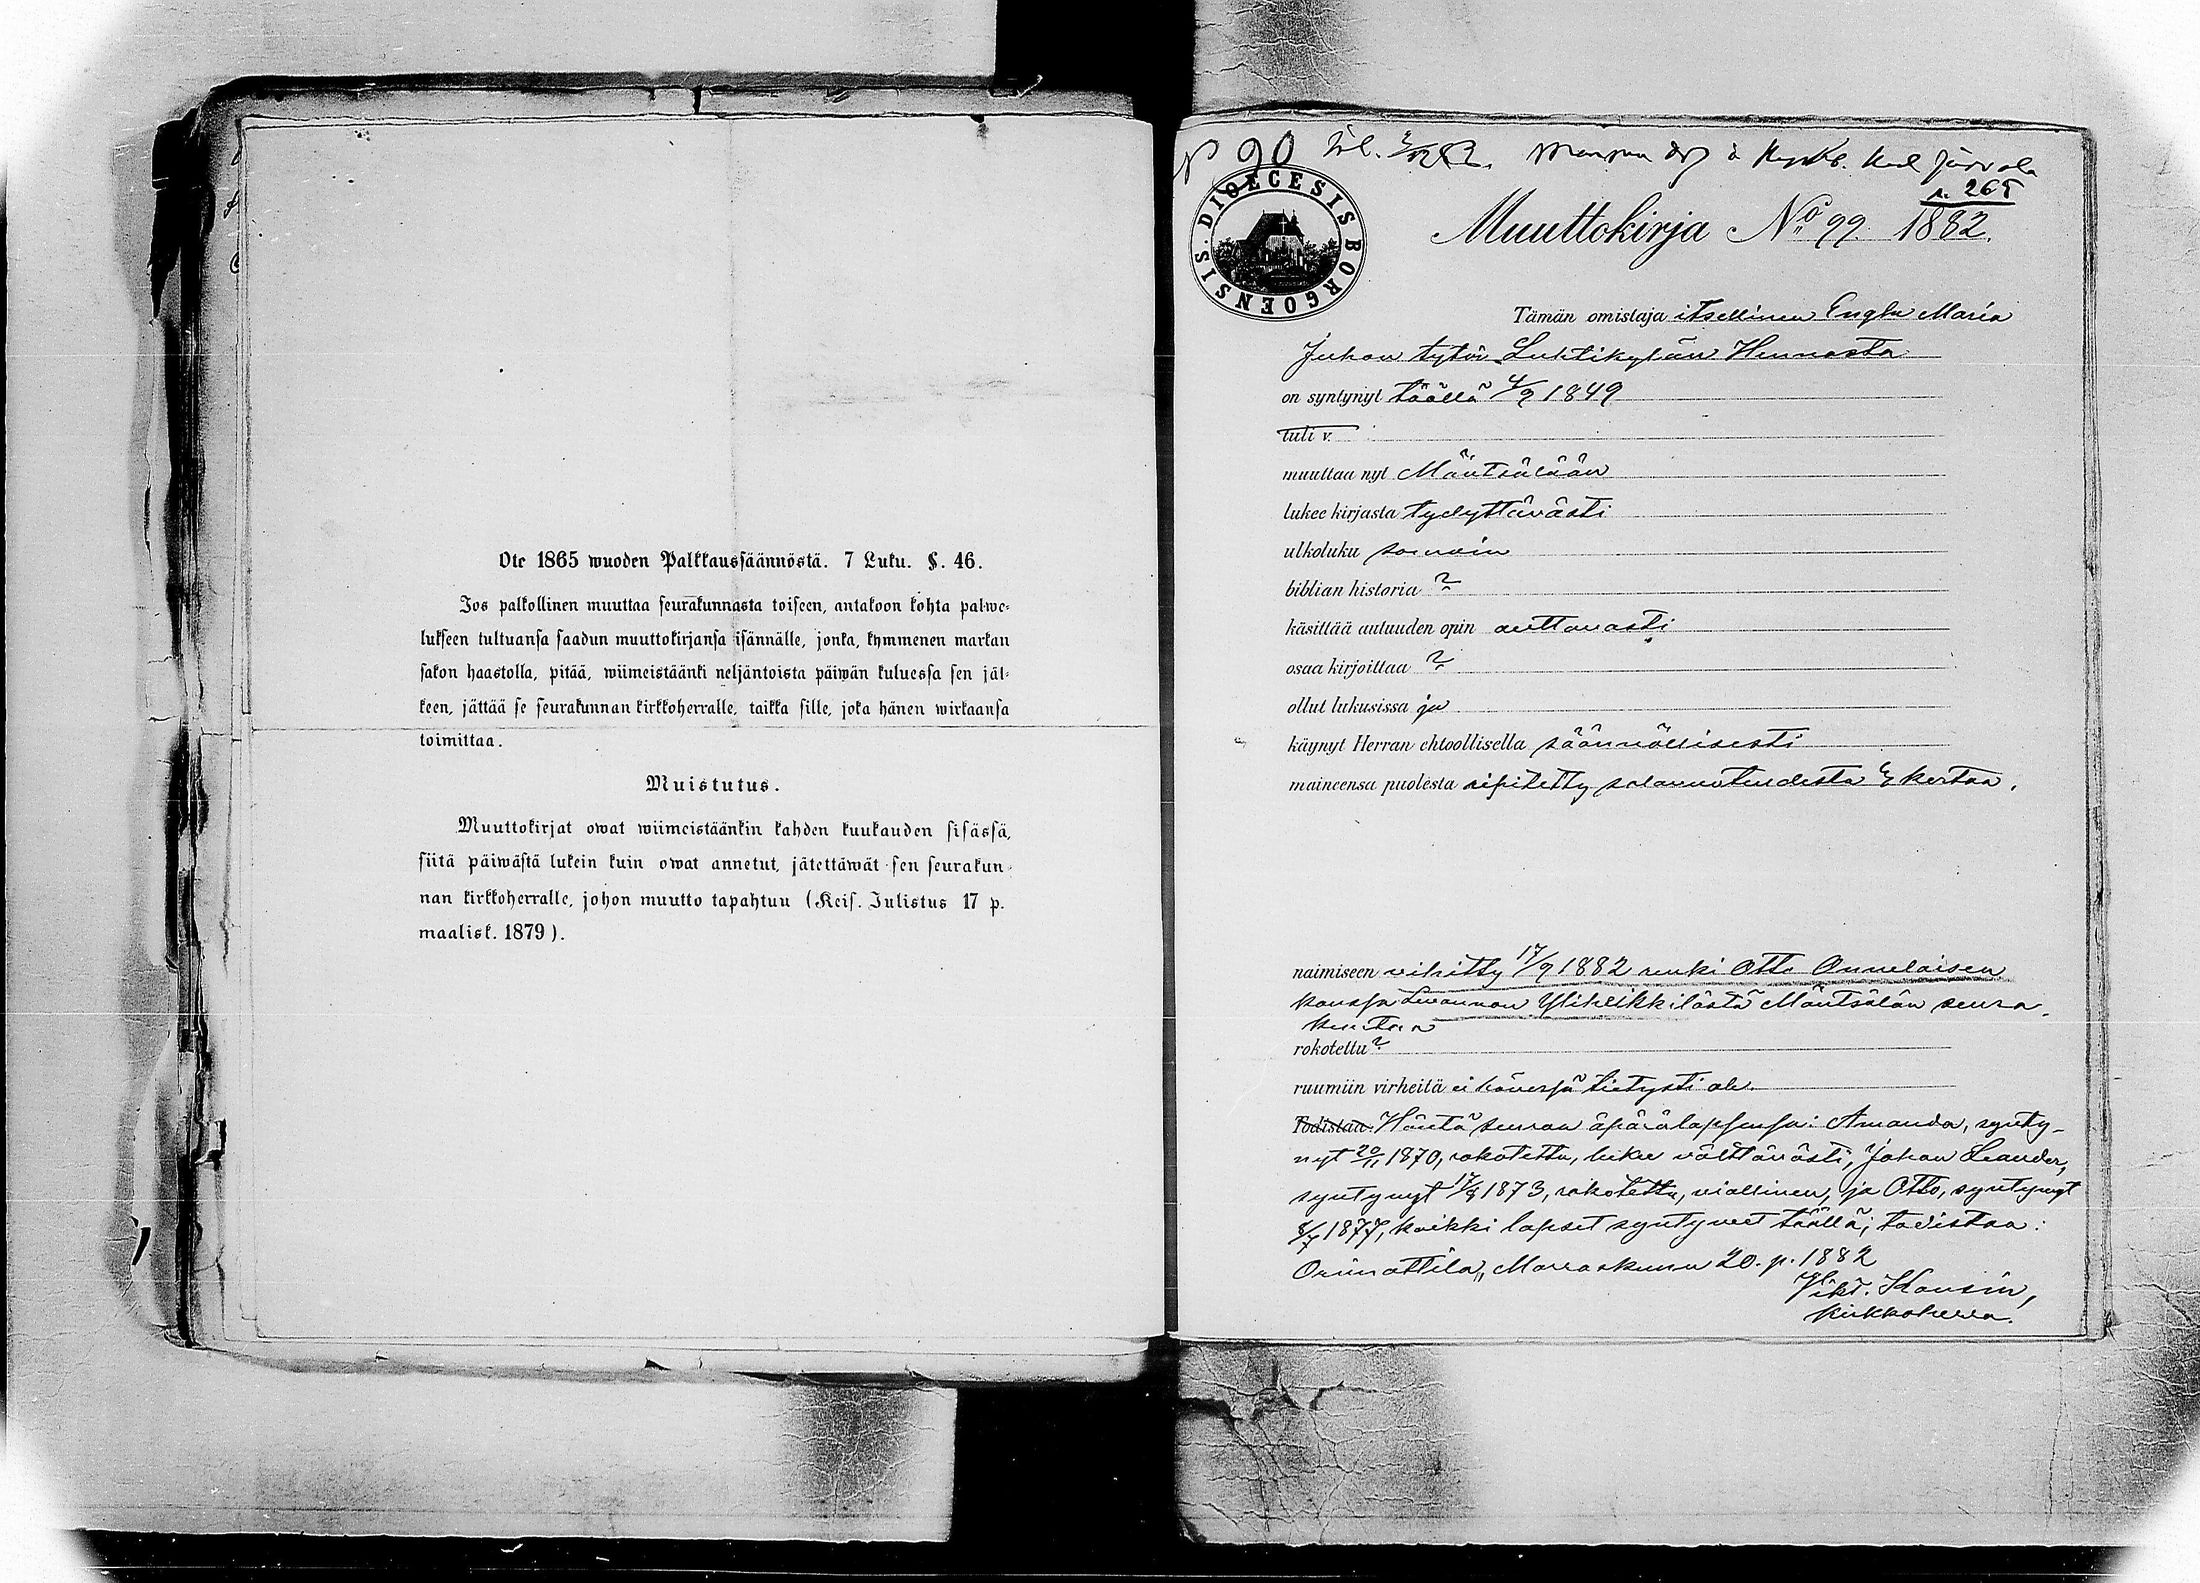 Ote 1865 wuoden Palkkaussäännöstä. 7 Luku. §. 46.
Jos palkollinen muuttaa seurakunnasta toiseen, antakoon kohta palwe-
lukseen tultuansa saadun muuttokirjansa isännälle, jonka, kymmenen markan
sakon haastolla, pitää, wiimeistäänki neljäntoista päiwän kuluessa sen jäl-
keen, jättää se seurakunnan kirkkoherralle, taikka sille, joka hänen wirkaansa
toimittaa.
Muistutus.
Muuttokirjat owat wiimeistäänkin kahden kuukauden sisässä,
siitä päiwästä lukein kuin owat annetut, jätettäwät sen seurakun-
nan kirkkoherralle, johon muutto tapahtuu (Keis. Julistus 17 p.
maalisk. 1879).
N 90
s. 265
DIOECESIS BORGOENSIS.
Muuttokirja No 99. 1882.
Tämän omistaja itsellinen Engla Maria
Juhan tytär Luhtikylän Hennasta
on syntynyt täällä 4/9 1849
tuli v.
muuttaa nyt Mäntsälään
lukee kirjasta tydyttävästi
ulkoluku samoin
biblian historia ?
käsittää autuuden opin auttavasti
osaa kirjoittaa ?
ollut lukusissa ja
käynyt Herran ehtoollisella säännöllisesti
maineensa puolesta ripitetty salavuoteudesta 3 kertaa.
naimiseen vihitty 17/9 1882 renki Otto Onnelaisen
kanssa Levannon Ylikeikkilästä Mäntsälän seura-
kuntaa
rokotettu ?
ruumiin virheitä ei hänessä tietysti ole.
Todistaa: Häntä seuraa äpärälapsensa: Amanda, synty-
nyt 20/11 1870, rokotettu, lukee välttävästi, Johan Leander,
syntynyt 17/8 1873, rokotettu, viallinen, ja Otto, syntynyt
8/7 1877, kaikki lapset syntyneet täällä; todistaa:
Orimattila, Marraskuun 20. p. 1882
Vikt. Kansin,
kirkkoherra.